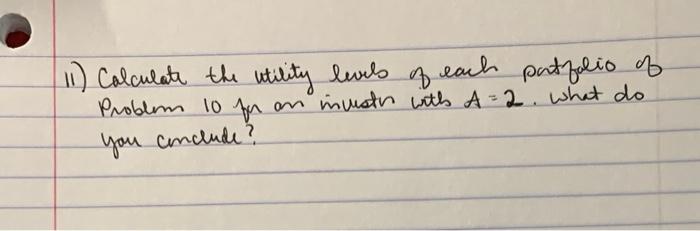 11) Calculate the utility levels of each portfolio of
Problem 10 for an investor with A = 2. What do
you conclude?